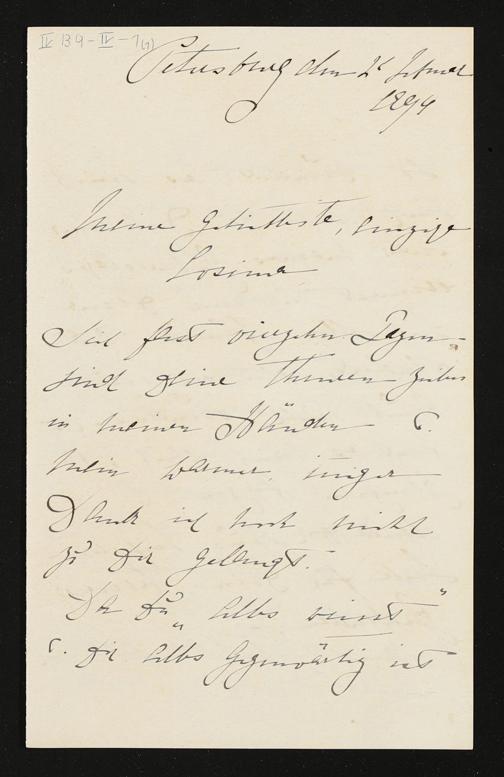 IV B 9 - IV - 7 (1)
Petersburg den 2t Februar
1894
Meine geliebteste, einzige
Cosima
Seit fast vierzehn Tagen
sind Deine theuren Zeilen
in meinen Händen u.
mein warmer, inniger
Dank ist noch nicht
zu Dir gelangt.
Da Du „Alles weisst"
u. Dir Alles gegenwärtig ist